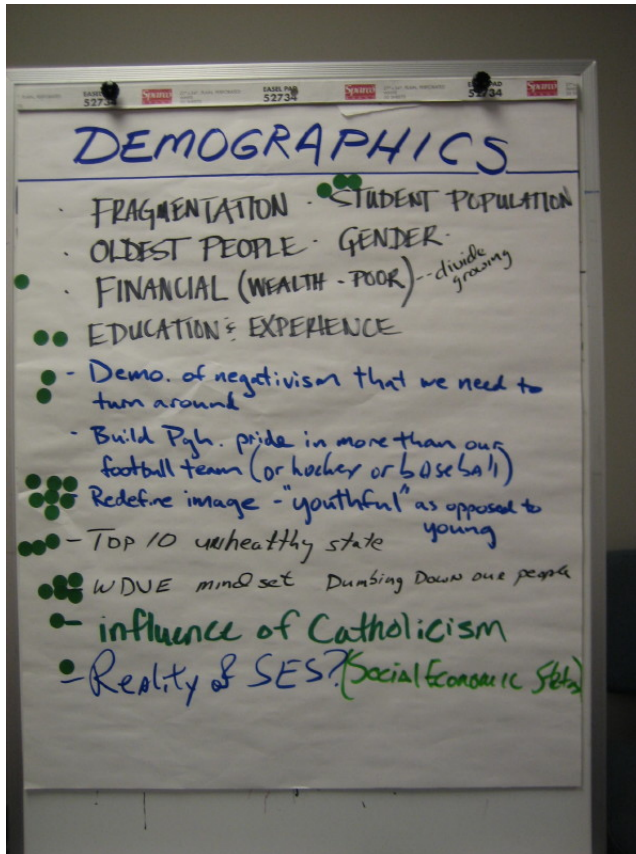 EASEL PAD
5273
Sparco
EASEL PAD
52734
Sparco
PAD
5 34
Sparco
DEMOGRAPHICS
· FRAGMENTATION · STUDENT POPULATION
· OLDEST PEOPLE · GENDER ·
· FINANCIAL (WEALTH - POOR) -- divide
growing
EDUCATION & EXPERIENCE
- Demo. of negativism that we need to
turn around
- Build Pgh. pride in more than our
football team (or hockey or baseball)
- Redefine image - "youthful" as opposed to
young
- TOP 10 unhealthy state
- WDVE mind set Dumbing Down our people
- influence of Catholicism
- Reality of SES? (Social Economic